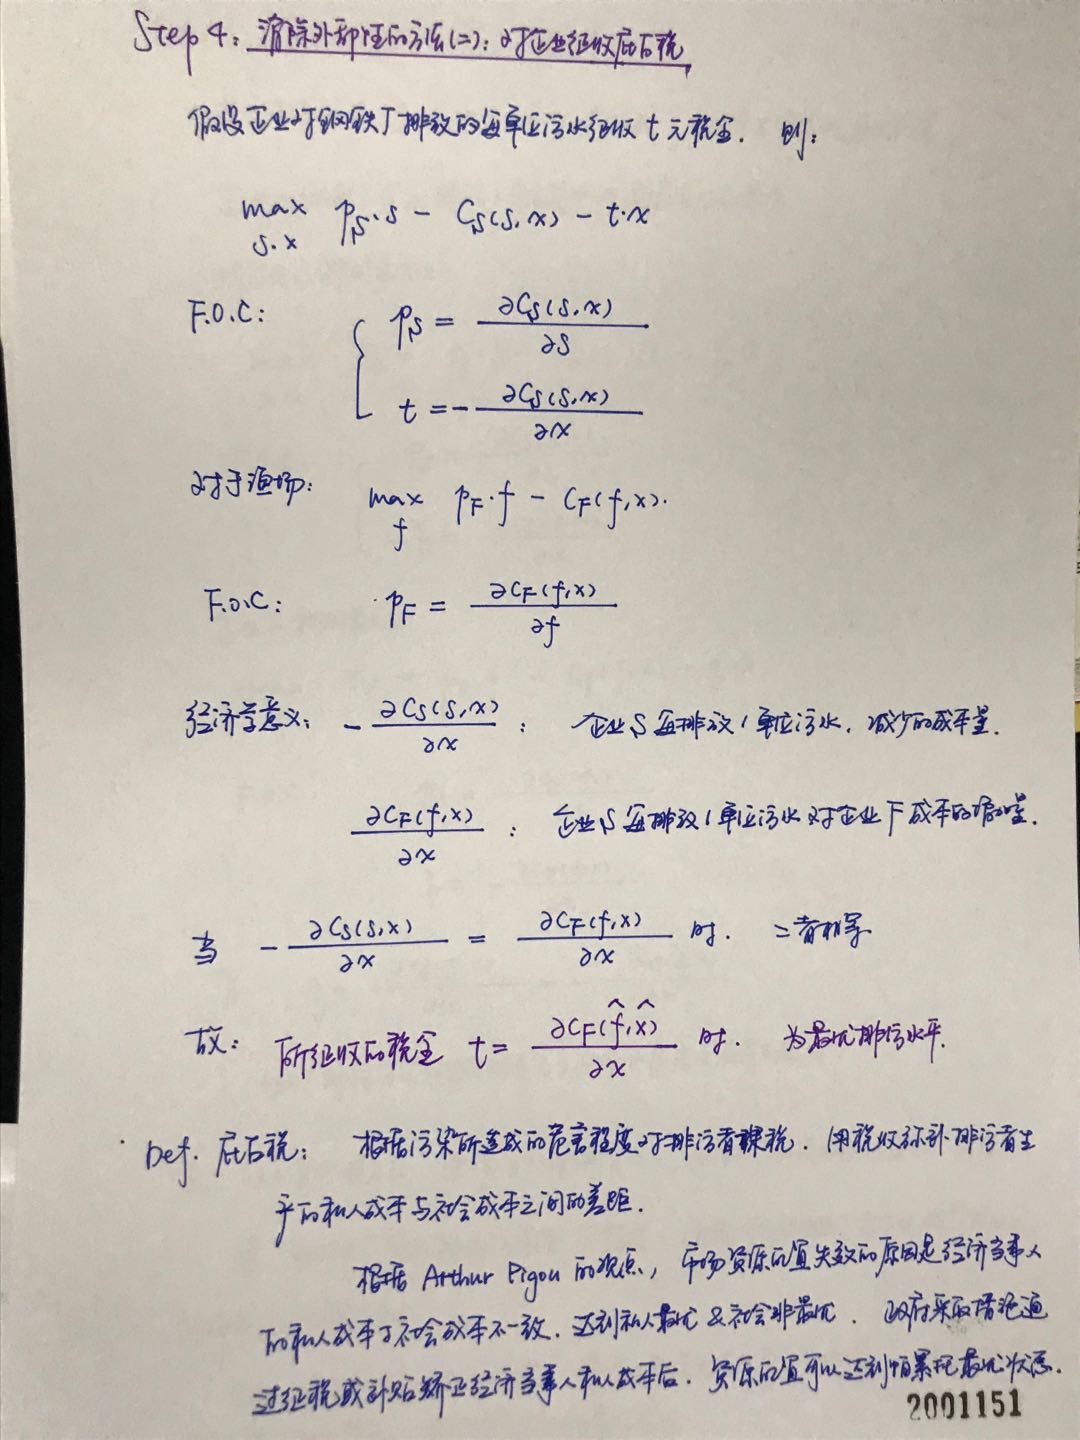 Step 4: 消除外部性的方法(二): 对企业征收庇古税
假设企业对钢铁厂排放的每单位污水征收 t 元税金. 则:
max p_S·s - C_S(s,x) - t·x
s.x
F.O.C: { p_S = ∂C_S(s,x)/∂s
t = -∂C_S(s,x)/∂x
对于渔场: max p_F·f - C_F(f,x).
f
F.O.C: p_F = ∂C_F(f,x)/∂f
经济学意义: -∂C_S(s,x)/∂x : 企业S每排放1单位污水, 减少的成本量.
∂C_F(f,x)/∂x : 企业S每排放1单位污水对企业F成本的增加量.
当 -∂C_S(s,x)/∂x = ∂C_F(f,x)/∂x 时. 二者相等
故: 所征收的税金 t = ∂C_F(f̂,x̂)/∂x 时. 为最优排污水平.
Def. 庇古税: 根据污染所造成的危害程度对排污者课税. 用税收弥补排污者生
产的私人成本与社会成本之间的差距.
根据 Arthur Pigou 的观点, 市场资源配置失效的原因是经济当事人
的私人成本与社会成本不一致. 达到私人最优&社会非最优. 政府采取措施通
过征税或补贴矫正经济当事人私人成本后. 资源配置可以达到帕累托最优状态.
2001151